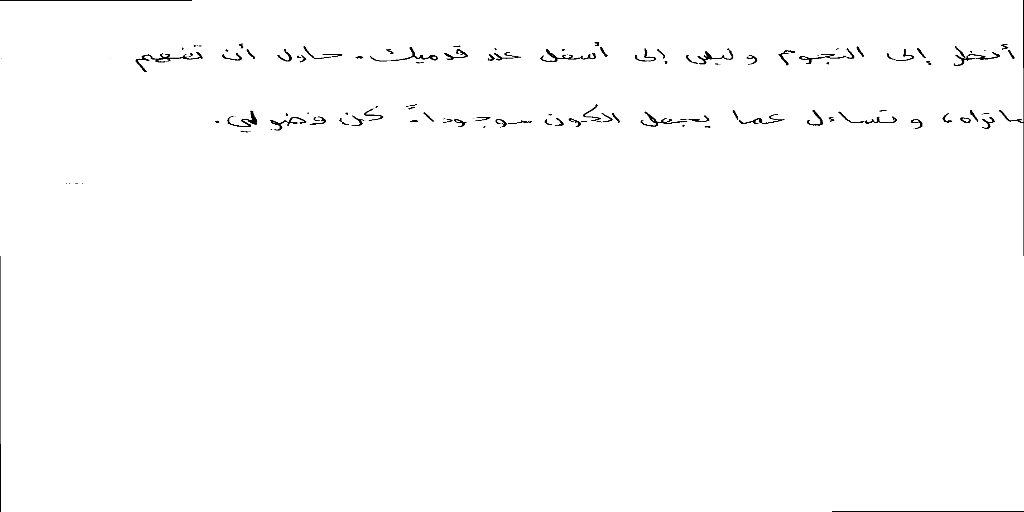 أنظر إلى النجوم وليس إلى أسفل عند قدميك. حاول أن تفهم
ماتراه، وتساءل عما يجعل الكون موجوداً. كن فضولي.